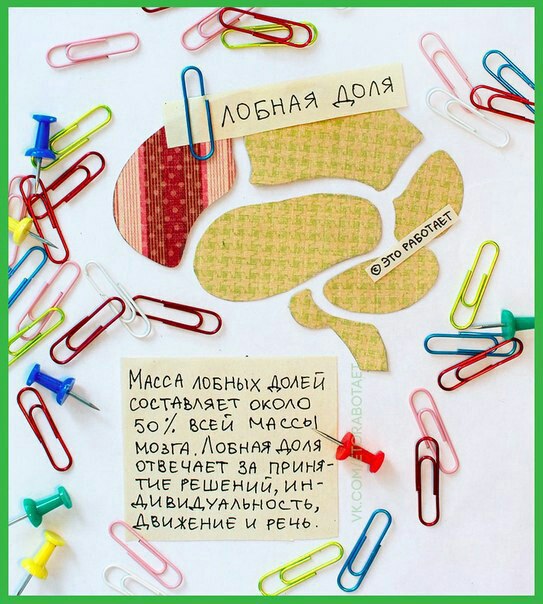 ЛОБНАЯ ДОЛЯ
© ЭТО РАБОТАЕТ
МАССА ЛОБНЫХ ДОЛЕЙ
СОСТАВЛЯЕТ ОКОЛО
50% ВСЕЙ МАССЫ
МОЗГА. ЛОБНАЯ ДОЛЯ
ОТВЕЧАЕТ ЗА ПРИНЯ-
ТИЕ РЕШЕНИЙ, ИН-
ДИВИДУАЛЬНОСТЬ,
ДВИЖЕНИЕ И РЕЧЬ.
VK.COM/ETORABOTAET